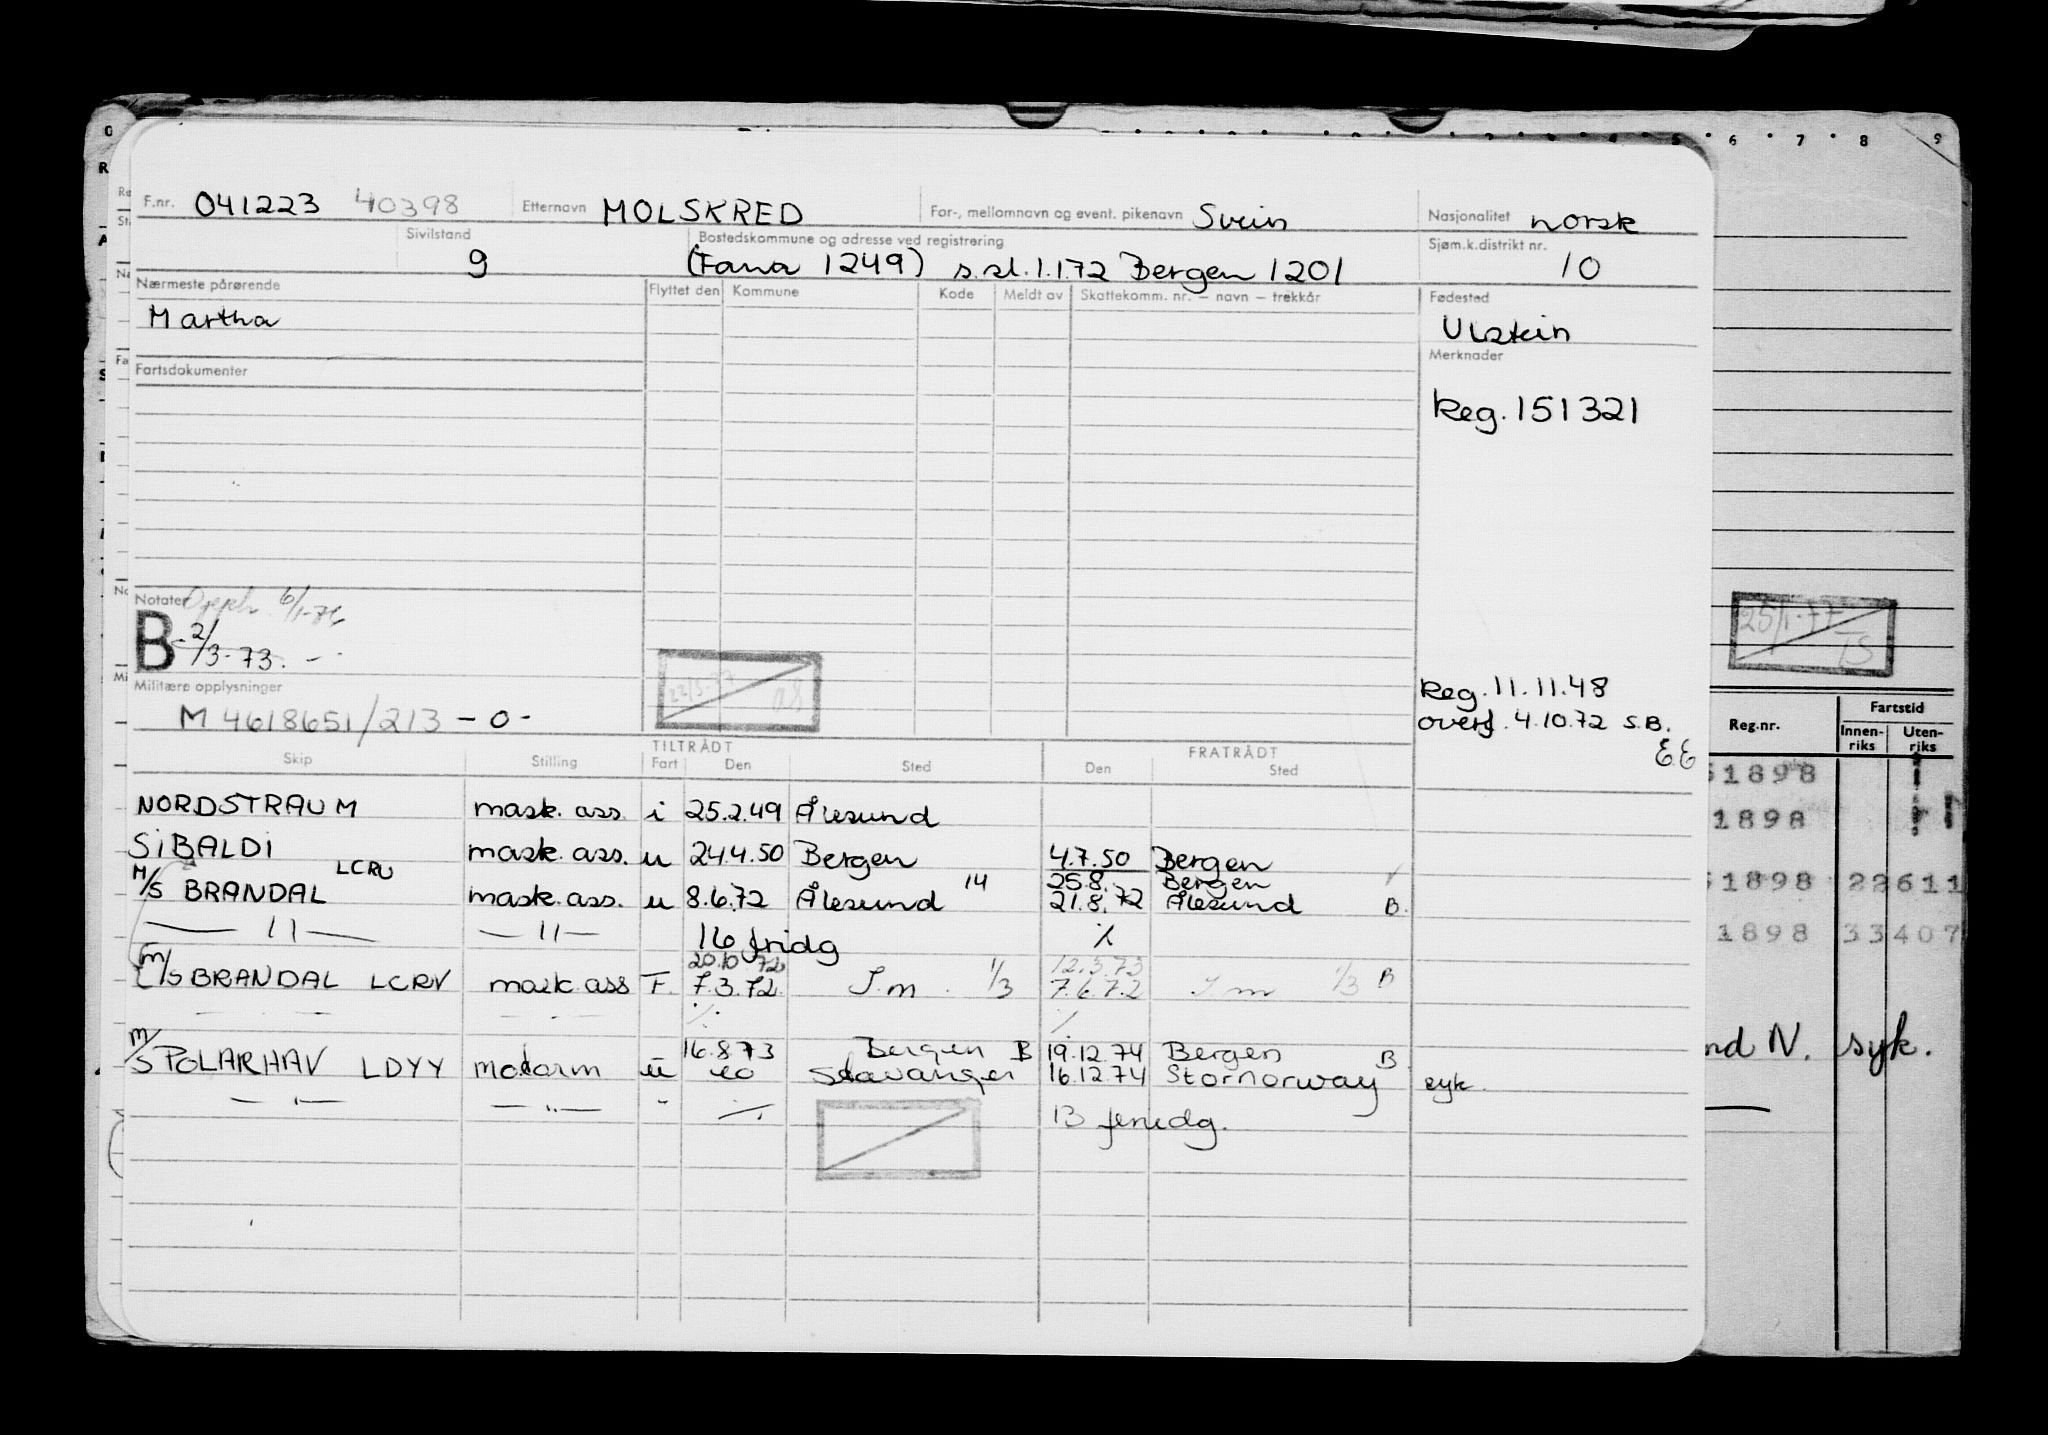 F.nr. 041223 40398 Etternavn MOLSKRED For-, mellomnavn og event. pikenavn Svein Nasjonalitet norsk
Sivilstand 9 Bostedskommune og adresse ved registrering (Fana 1249) s.sl. 1.1.72 Bergen 1201 Sjøm.k.distrikt nr. 10
Nærmeste pårørende Flyttet den Kommune Kode Meldt av Skattekomm. nr. — navn — trekkår Fødested
Martha Ulstein
Merknader
Fartsdokumenter
Reg. 151321
Notater 6/1-76
B 2/3-73. –
Militære opplysninger
M 4618651/213 - 0 -
Reg. 11.11.48
overf. 4.10.72 S.B.
E.E
TILTRÅDT FRATRÅDT
Skip Stilling Fart Den Sted Den Sted
NORDSTRAUM mask. ass. i 25.2.49 Ålesund
SIBALDI mask. ass. u 24.4.50 Bergen 4.7.50 Bergen
25.8. Bergen
M/S BRANDAL LCRU mask. ass. u 8.6.72 Ålesund 14 21.8.72 Ålesund B.
— 11 — — 11 — 16 fridg ٪
20.10 72 12.3.73
M/S BRANDAL LCRV mask ass F. 7.3.72 I.m. 1/3 7.6.72 I m 1/3 B
16.8.73 Bergen B 19.12.74 Bergen B
M/S POLARHAV LDYY motorm u Stavanger 16.12.74 Stornorway syk.
— " — — " — " 13 feriedg.
6 7 8 9
25/1-77
TS
Reg.nr. Fartstid
Innen-riks Uten-riks
51898
1898
51898 22611
1898 33407
nd N. syk.